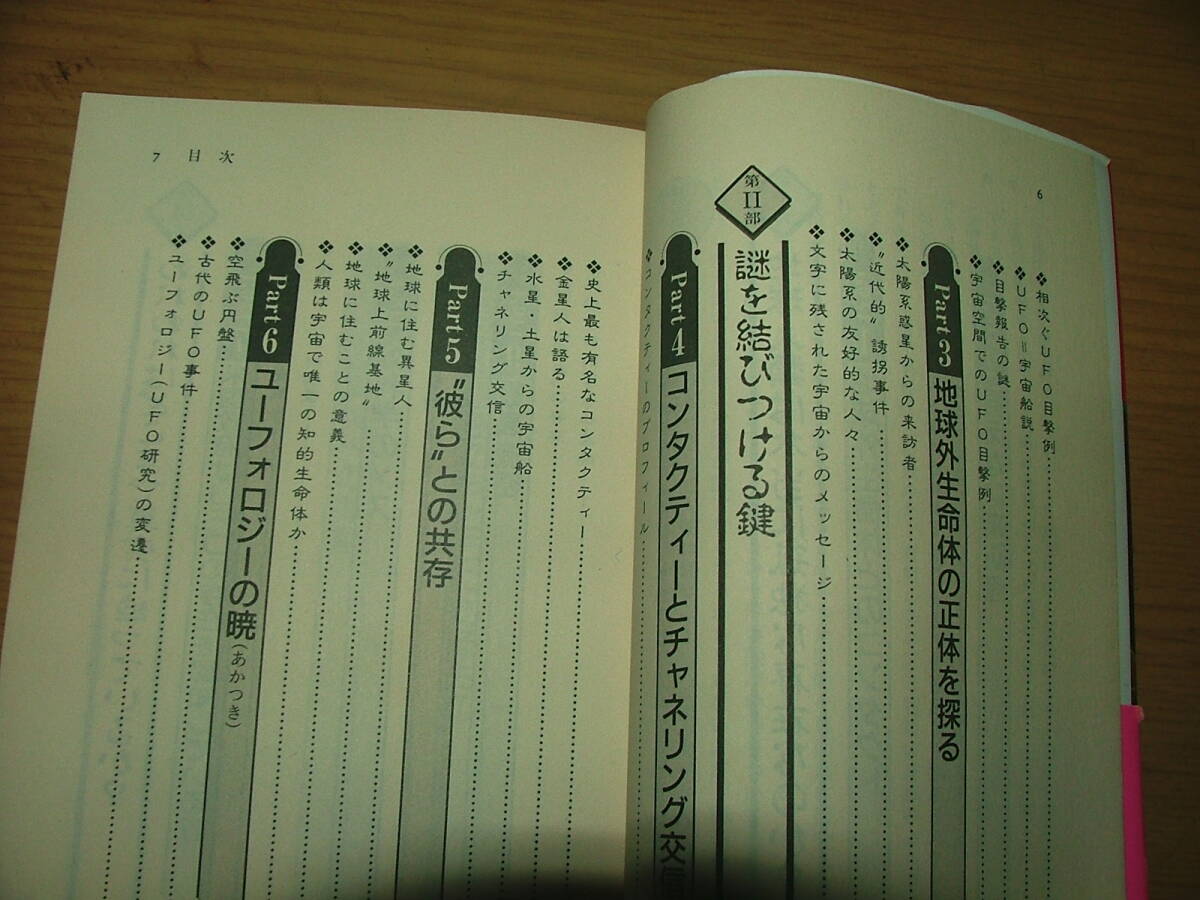 6
❖相次ぐUFO目撃例
❖UFO＝宇宙船説
❖目撃報告の謎
❖宇宙空間でのUFO目撃例
Part3 地球外生命体の正体を探る
❖太陽系惑星からの来訪者
❖〝近代的〟誘拐事件
❖太陽系の友好的な人々
❖文字に残された宇宙からのメッセージ
第II部 謎を結びつける鍵
Part4 コンタクティーとチャネリング交信
❖コンタクティーのプロフィール
7 目次
❖史上最も有名なコンタクティー
❖金星人は語る
❖水星・土星からの宇宙船
❖チャネリング交信
Part5 〝彼ら〟との共存
❖地球に住む異星人
❖〝地球上前線基地〟
❖地球に住むことの意義
❖人類は宇宙で唯一の知的生命体か
Part6 ユーフォロジーの暁(あかつき)
❖空飛ぶ円盤
❖古代のUFO事件
❖ユーフォロジー(UFO研究)の変遷